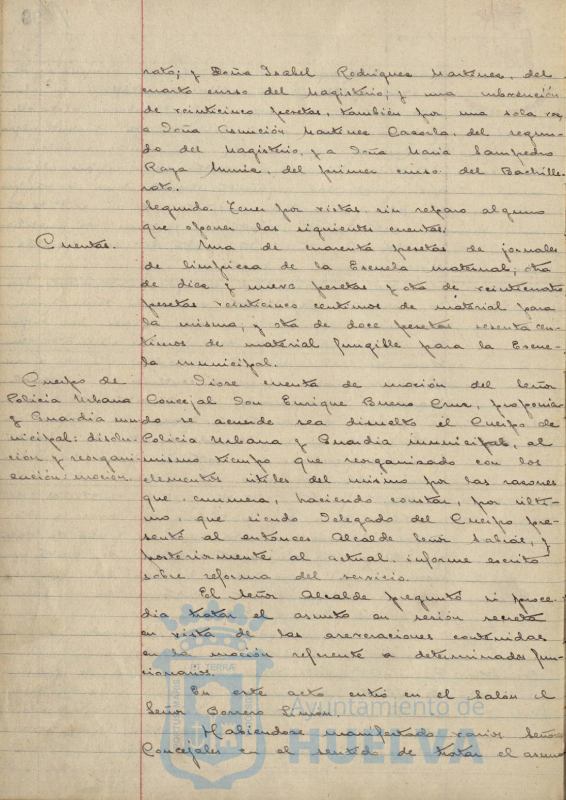 rato; y Doña Isabel Rodríguez Martínez, del
cuarto curso del Magisterio; y una subvención
de veinticinco pesetas, también por una sola vez,
a Doña Asunción Martínez Cazorla, del segun-
do del Magisterio, y a Doña María Sampedro
Raya Muria, del primer curso del Bachille-
rato.
Segundo. Tener por vistas sin reparo alguno
que oponer las siguientes cuentas:
Cuentas.
Una de cuarenta pesetas de jornales
de limpieza de la Escuela maternal; otra
de diez y nueve pesetas y otra de veinticuatro
pesetas veinticinco centimos de material para
la misma, y otra de doce pesetas sesenta cen-
timos de material fungible para la Escue-
la municipal.
Cuerpo de
Policia Urbana
y Guardia mu-
nicipal: disolu-
ción y reorgani-
zación: moción.
Diose cuenta de moción del Señor
Concejal Don Enrique Bueno Cruz, proponien-
do se acuerde sea disuelto el Cuerpo de
Policia Urbana y Guardia municipal, al
mismo tiempo que reorganizado con los
elementos útiles del mismo por las razones
que enumera, haciendo constar, por últi-
mo, que siendo Delegado del Cuerpo pre-
sentó al entónces Alcalde Señor Sabiol, y
posteriormente al actual informe escrito
sobre reforma del servicio.
El Señor Alcalde preguntó si proce-
dia tratar el asunto en sesión secreta
en vista de las aseveraciones contenidas
en la moción referente a determinados fun-
cionarios.
En este acto entró en el Salón el
Señor Borrero Limón.
Habiendose manifestado varios Señores
Concejales en el sentido de tratar el asunto
Ayuntamiento de
HUELVA